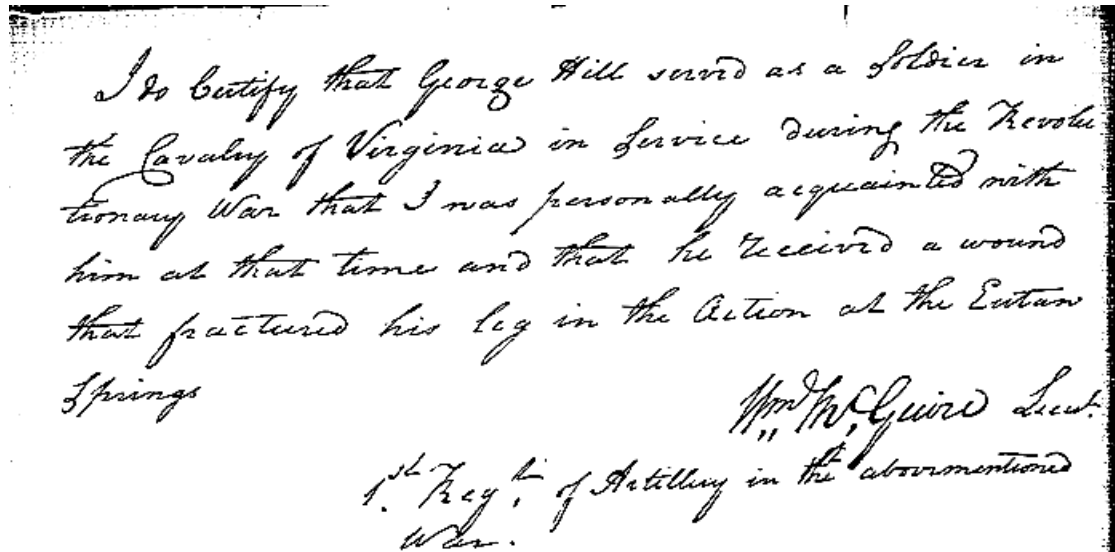 I do Certify that George Hill servd as a Soldier in
the Cavalry of Virginia in Service during the Revolu
tionary War that I was personally acquainted with
him at that time and that he received a wound
that fractured his leg in the Action at the Eutaw
Springs
Wm. McGuire Lieut.
1st Regt. of Artillery in the abovementioned
War.